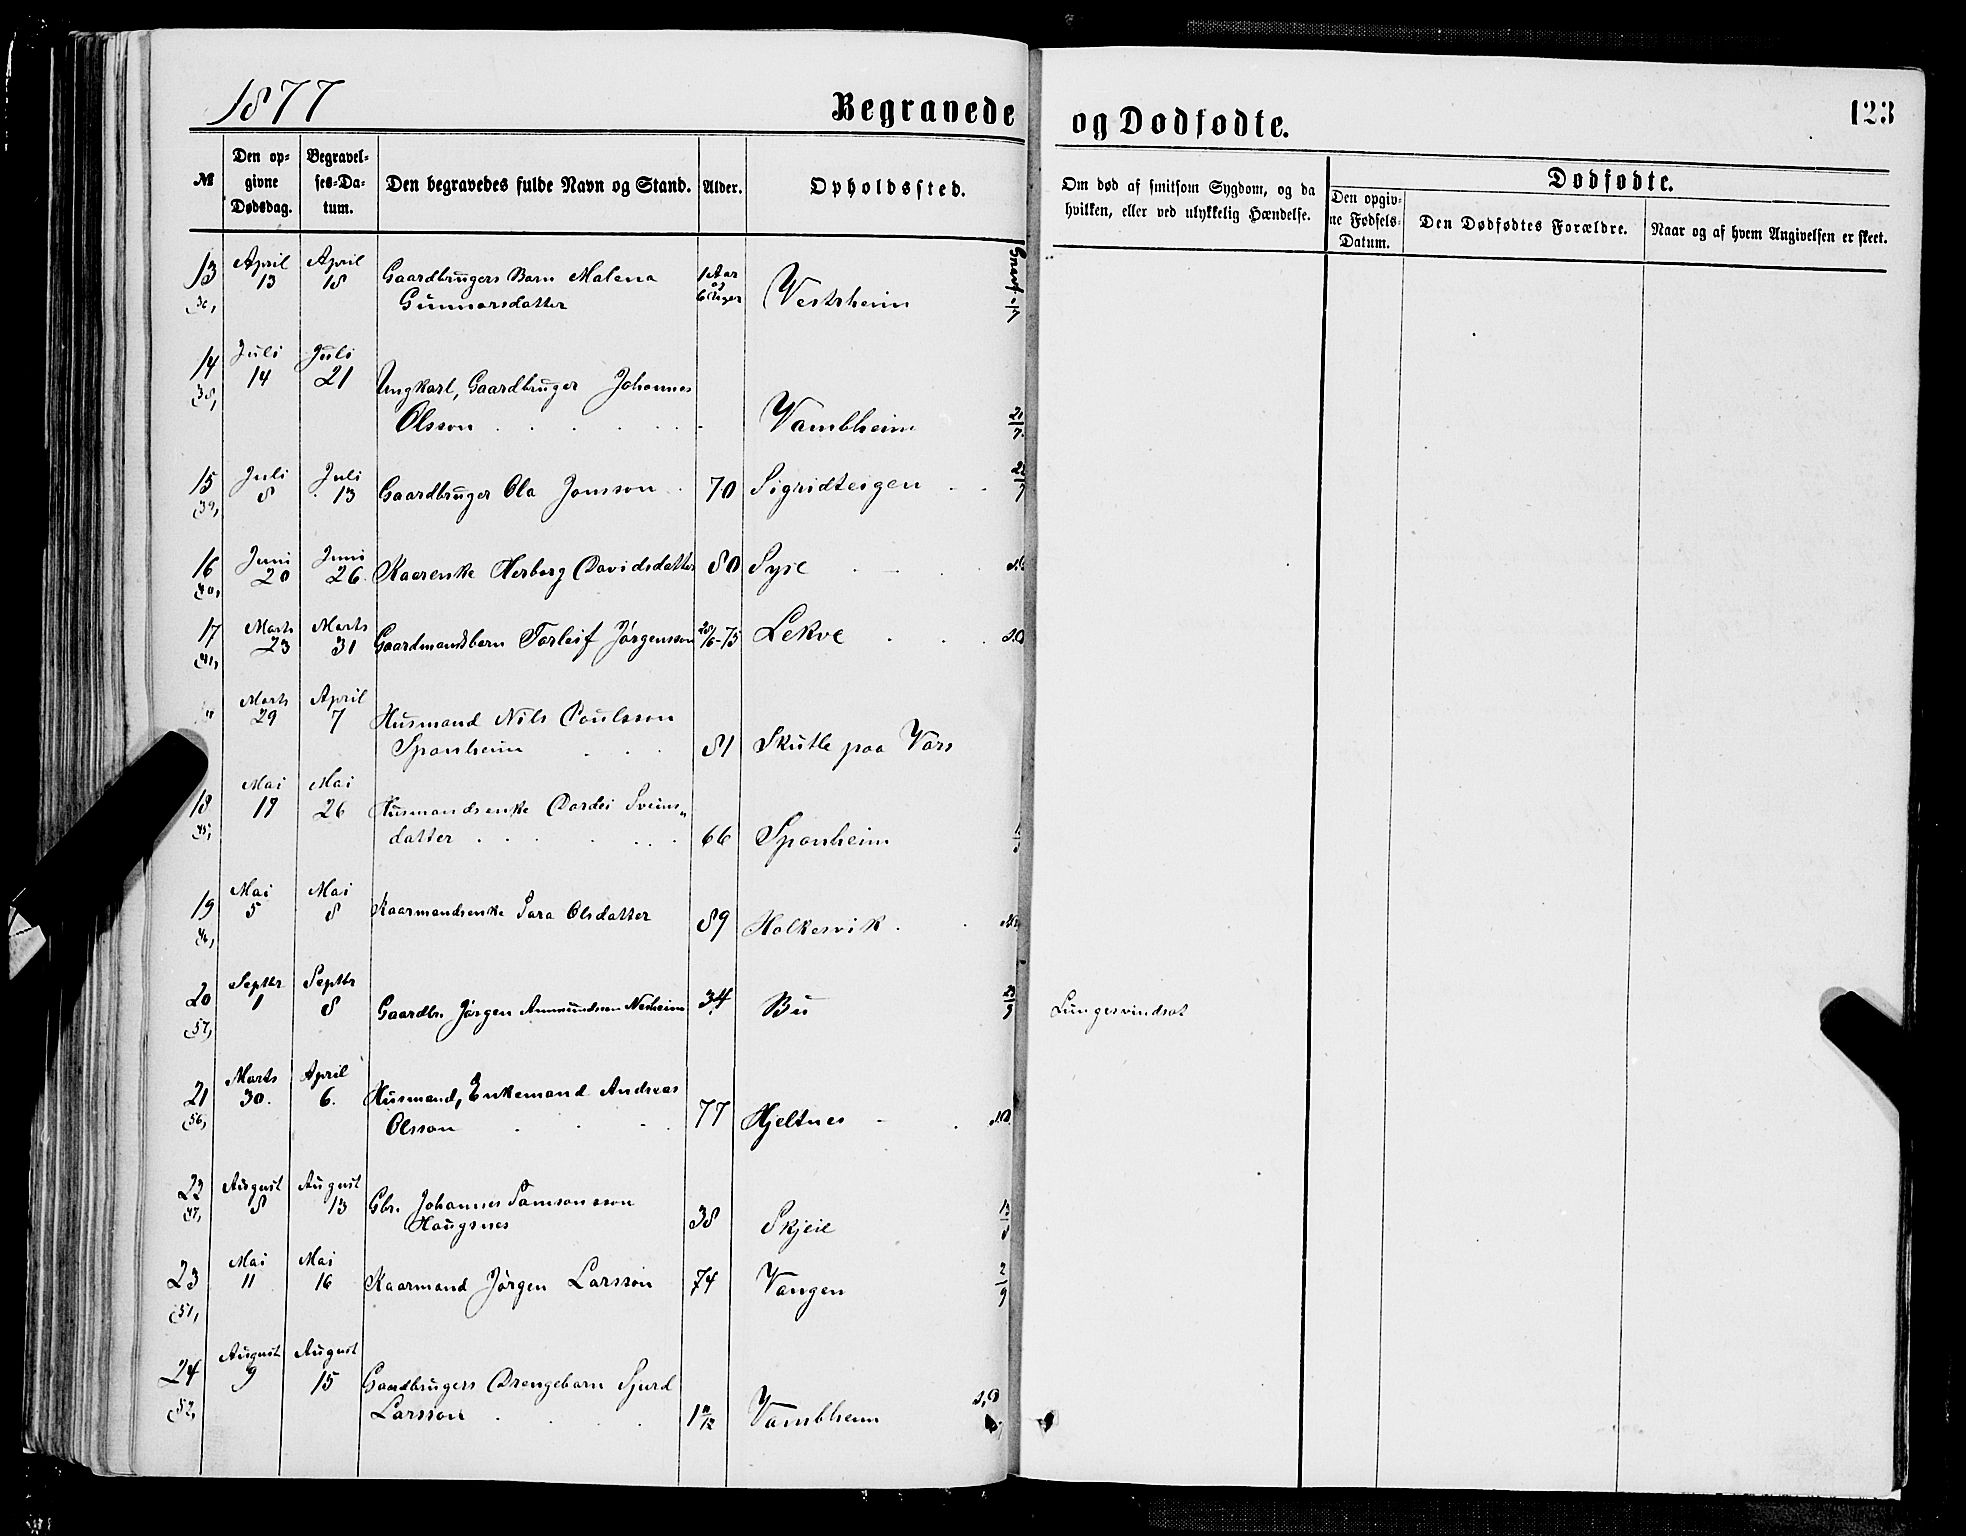 1877 Begravede og Dodfodte. 123
№ Den opgivne Dødsdag. Begravelses-Datum. Den begravedes fulde Navn og Stand. Alder. Opholdssted. Om død af smitsom Sygdom, og da hvilken, eller ved ulykkelig Hændelse. Dødfødte. Den opgivne Fødsels-Datum. Den Dødfødtes Forældre. Naar og af hvem Angivelsen er skeet.
13 April 13 April 18 Gaardbrugers Barn Malena 1 Aar og 6 Uger Vestrheim
Gunnarsdatter
14 Juli 14 Juli 21 Ungkarl, Gaardbruger Johannes
(38, Olsson Vambheim 21/7
15 Juli 8 Juli 13 Gaardbruger Ola Jonsson 70 Sigridteigen
(39,
16 Juni 20 Juni 26. Kaarenke Herborg Davidsdatter 80 Syse
(40,
17 Marts 23 Marts 31 Gaardmandsbarn Torleif Jørgensson 28/6-75 Lekve
(41,
" Marts 29 April 7 Husmand Nils Poulsson
Sponheim 81 Skutle paa Vors
18 Mai 19 Mai 26 Husmandsenke Dordei Sveins"
(45, datter 66 Sponheim
19 Mai 5 Mai 8 Kaarmandsenke Sara Olsdatter 89 Holkesvik
(46,
20 Septbr 1 Septbr 8 Gaardbr. Jørgen Ammundsen Nesheim 34 Bu Lungesvindsot
(57,
21 Marts 30. April 6. Husmand, Enkemand Andreas
(56, Olsson 77 Hjeltnes s.D.
22 August 8 August 13 Gbr. Johannes Samsonsson
(47, Haugsnes 38 Skjeie 13/8
23 Mai 11 Mai 16 Kaarmand Jørgen Larsson 74 Vangen 2/9
(51,
24 August 9 August 15 Gaardbrugers Drengebarn Sjurd
(52, Larsson Vambheim s.D